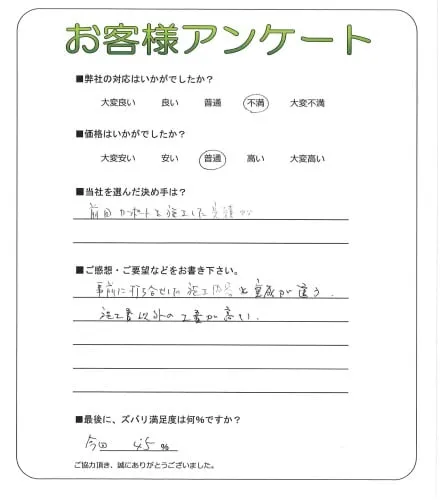 お客様アンケート
■弊社の対応はいかがでしたか？
大変良い 良い 普通 不満 大変不満
■価格はいかがでしたか？
大変安い 安い 普通 高い 大変高い
■当社を選んだ決め手は？
前回カーポートを施工した実績から
■ご感想・ご要望などをお書き下さい。
事前に打ち合せした施工内容と が違う.
以外の が高い.
■最後に、ズバリ満足度は何％ですか？
今回 45 %
ご協力頂き、誠にありがとうございました。